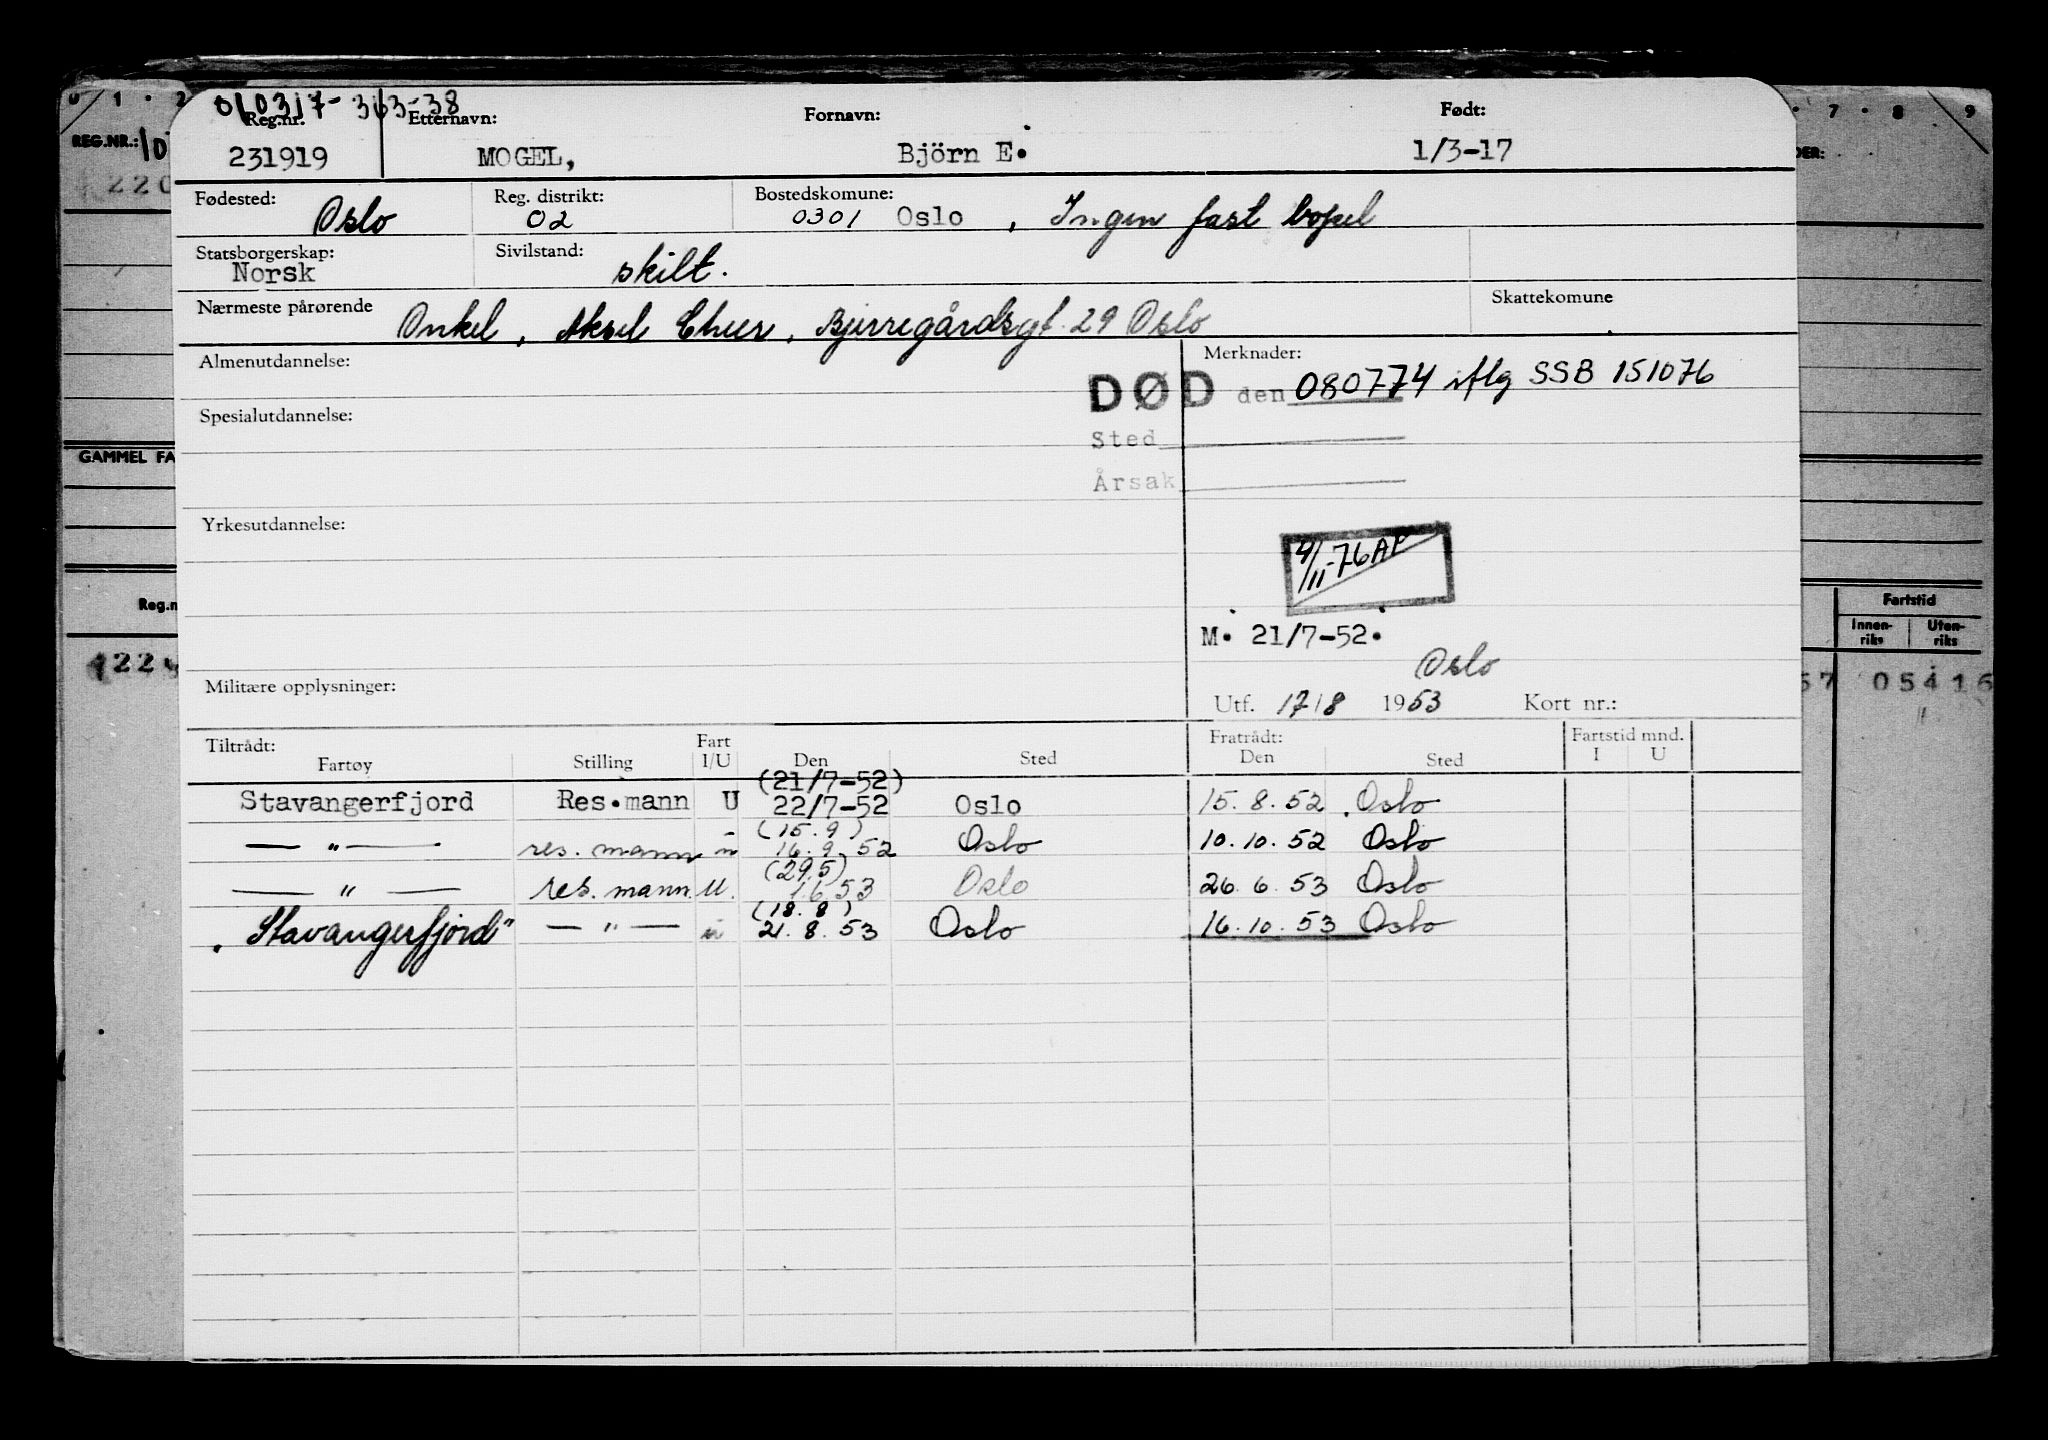 0 1 · 2
REG.NR.: 10
220
GAMMEL FA
Reg.n
· 7 · 8 9
DER:
Fartstid
Innen-riks Uten-riks
57 05416
010317-363-38
Reg.nr. Etternavn: Fornavn: Født:
231919 MOGEL, Björn E. 1/3-17
Fødested: Oslo Reg. distrikt: 02 Bostedskomune: 0301 Oslo , Ingen fast bopel
Statsborgerskap: Norsk Sivilstand: skilt.
Nærmeste pårørende Onkel, Aksel Bjerregårdsgt. 29 Oslo Skattekomune
Almenutdannelse: Merknader:
DØD den 080774 iflg SSB 151076
Spesialutdannelse:
Sted
Årsak
Yrkesutdannelse:
4/11-76 AP
M. 21/7-52.
Oslo
Militære opplysninger:
Utf. 17/8 1953 Kort nr.:
Tiltrådt: Fratrådt: Fartstid mnd.
Fartøy Stilling Fart I/U Den Sted Den Sted I U
(21/7-52)
Stavangerfjord Res.mann U 22/7-52 Oslo 15.8.52 Oslo
(15.9)
— " — res. mann u 16.9 52 Oslo 10.10.52 Oslo
(29.5)
— " — res. mann. U. 1 6 53 Oslo 26.6.53 Oslo
(18.8)
"Stavangerfjord" — " — u 21.8.53 Oslo 16.10.53 Oslo